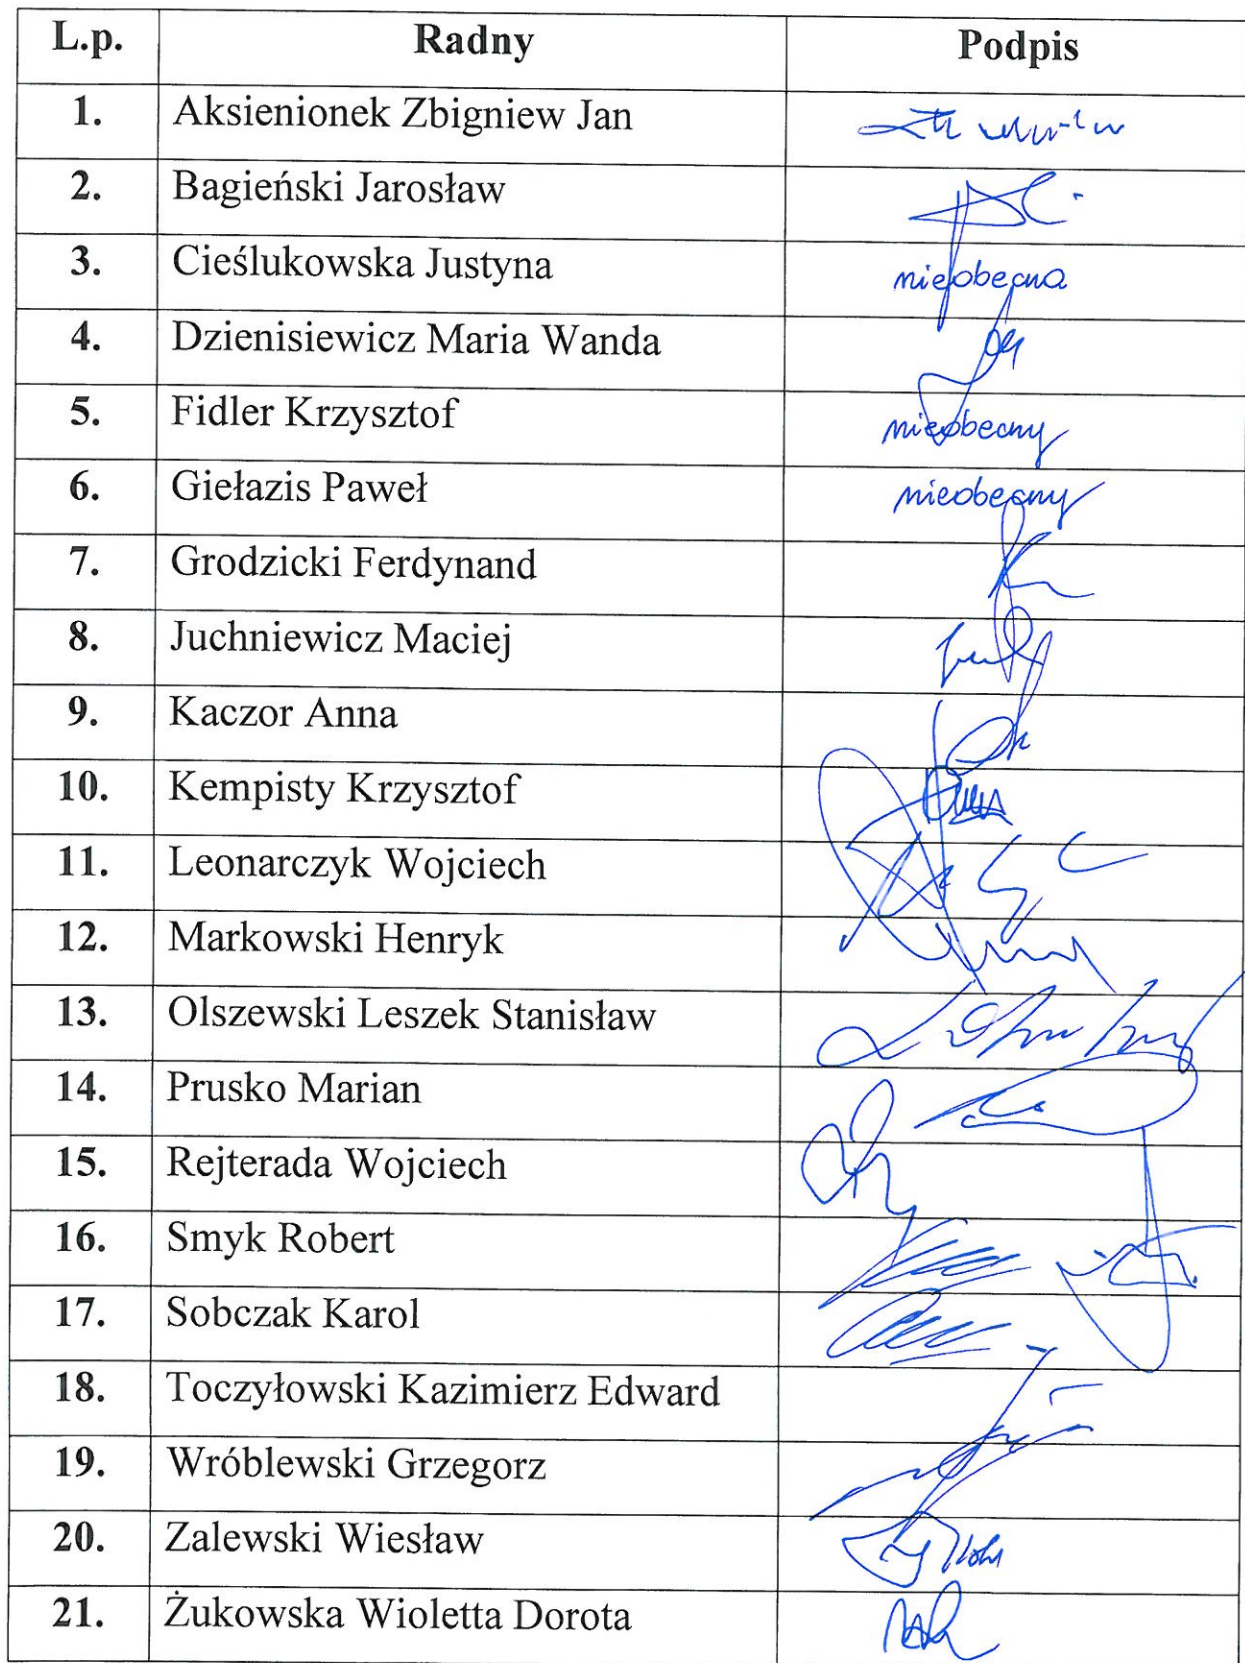 L.p. Radny Podpis
1. Aksienionek Zbigniew Jan
2. Bagieński Jarosław
3. Cieślukowska Justyna nieobecna
4. Dzienisiewicz Maria Wanda
5. Fidler Krzysztof nieobecny
6. Giełazis Paweł nieobecny
7. Grodzicki Ferdynand
8. Juchniewicz Maciej
9. Kaczor Anna
10. Kempisty Krzysztof
11. Leonarczyk Wojciech
12. Markowski Henryk
13. Olszewski Leszek Stanisław
14. Prusko Marian
15. Rejterada Wojciech
16. Smyk Robert
17. Sobczak Karol
18. Toczyłowski Kazimierz Edward
19. Wróblewski Grzegorz
20. Zalewski Wiesław
21. Żukowska Wioletta Dorota